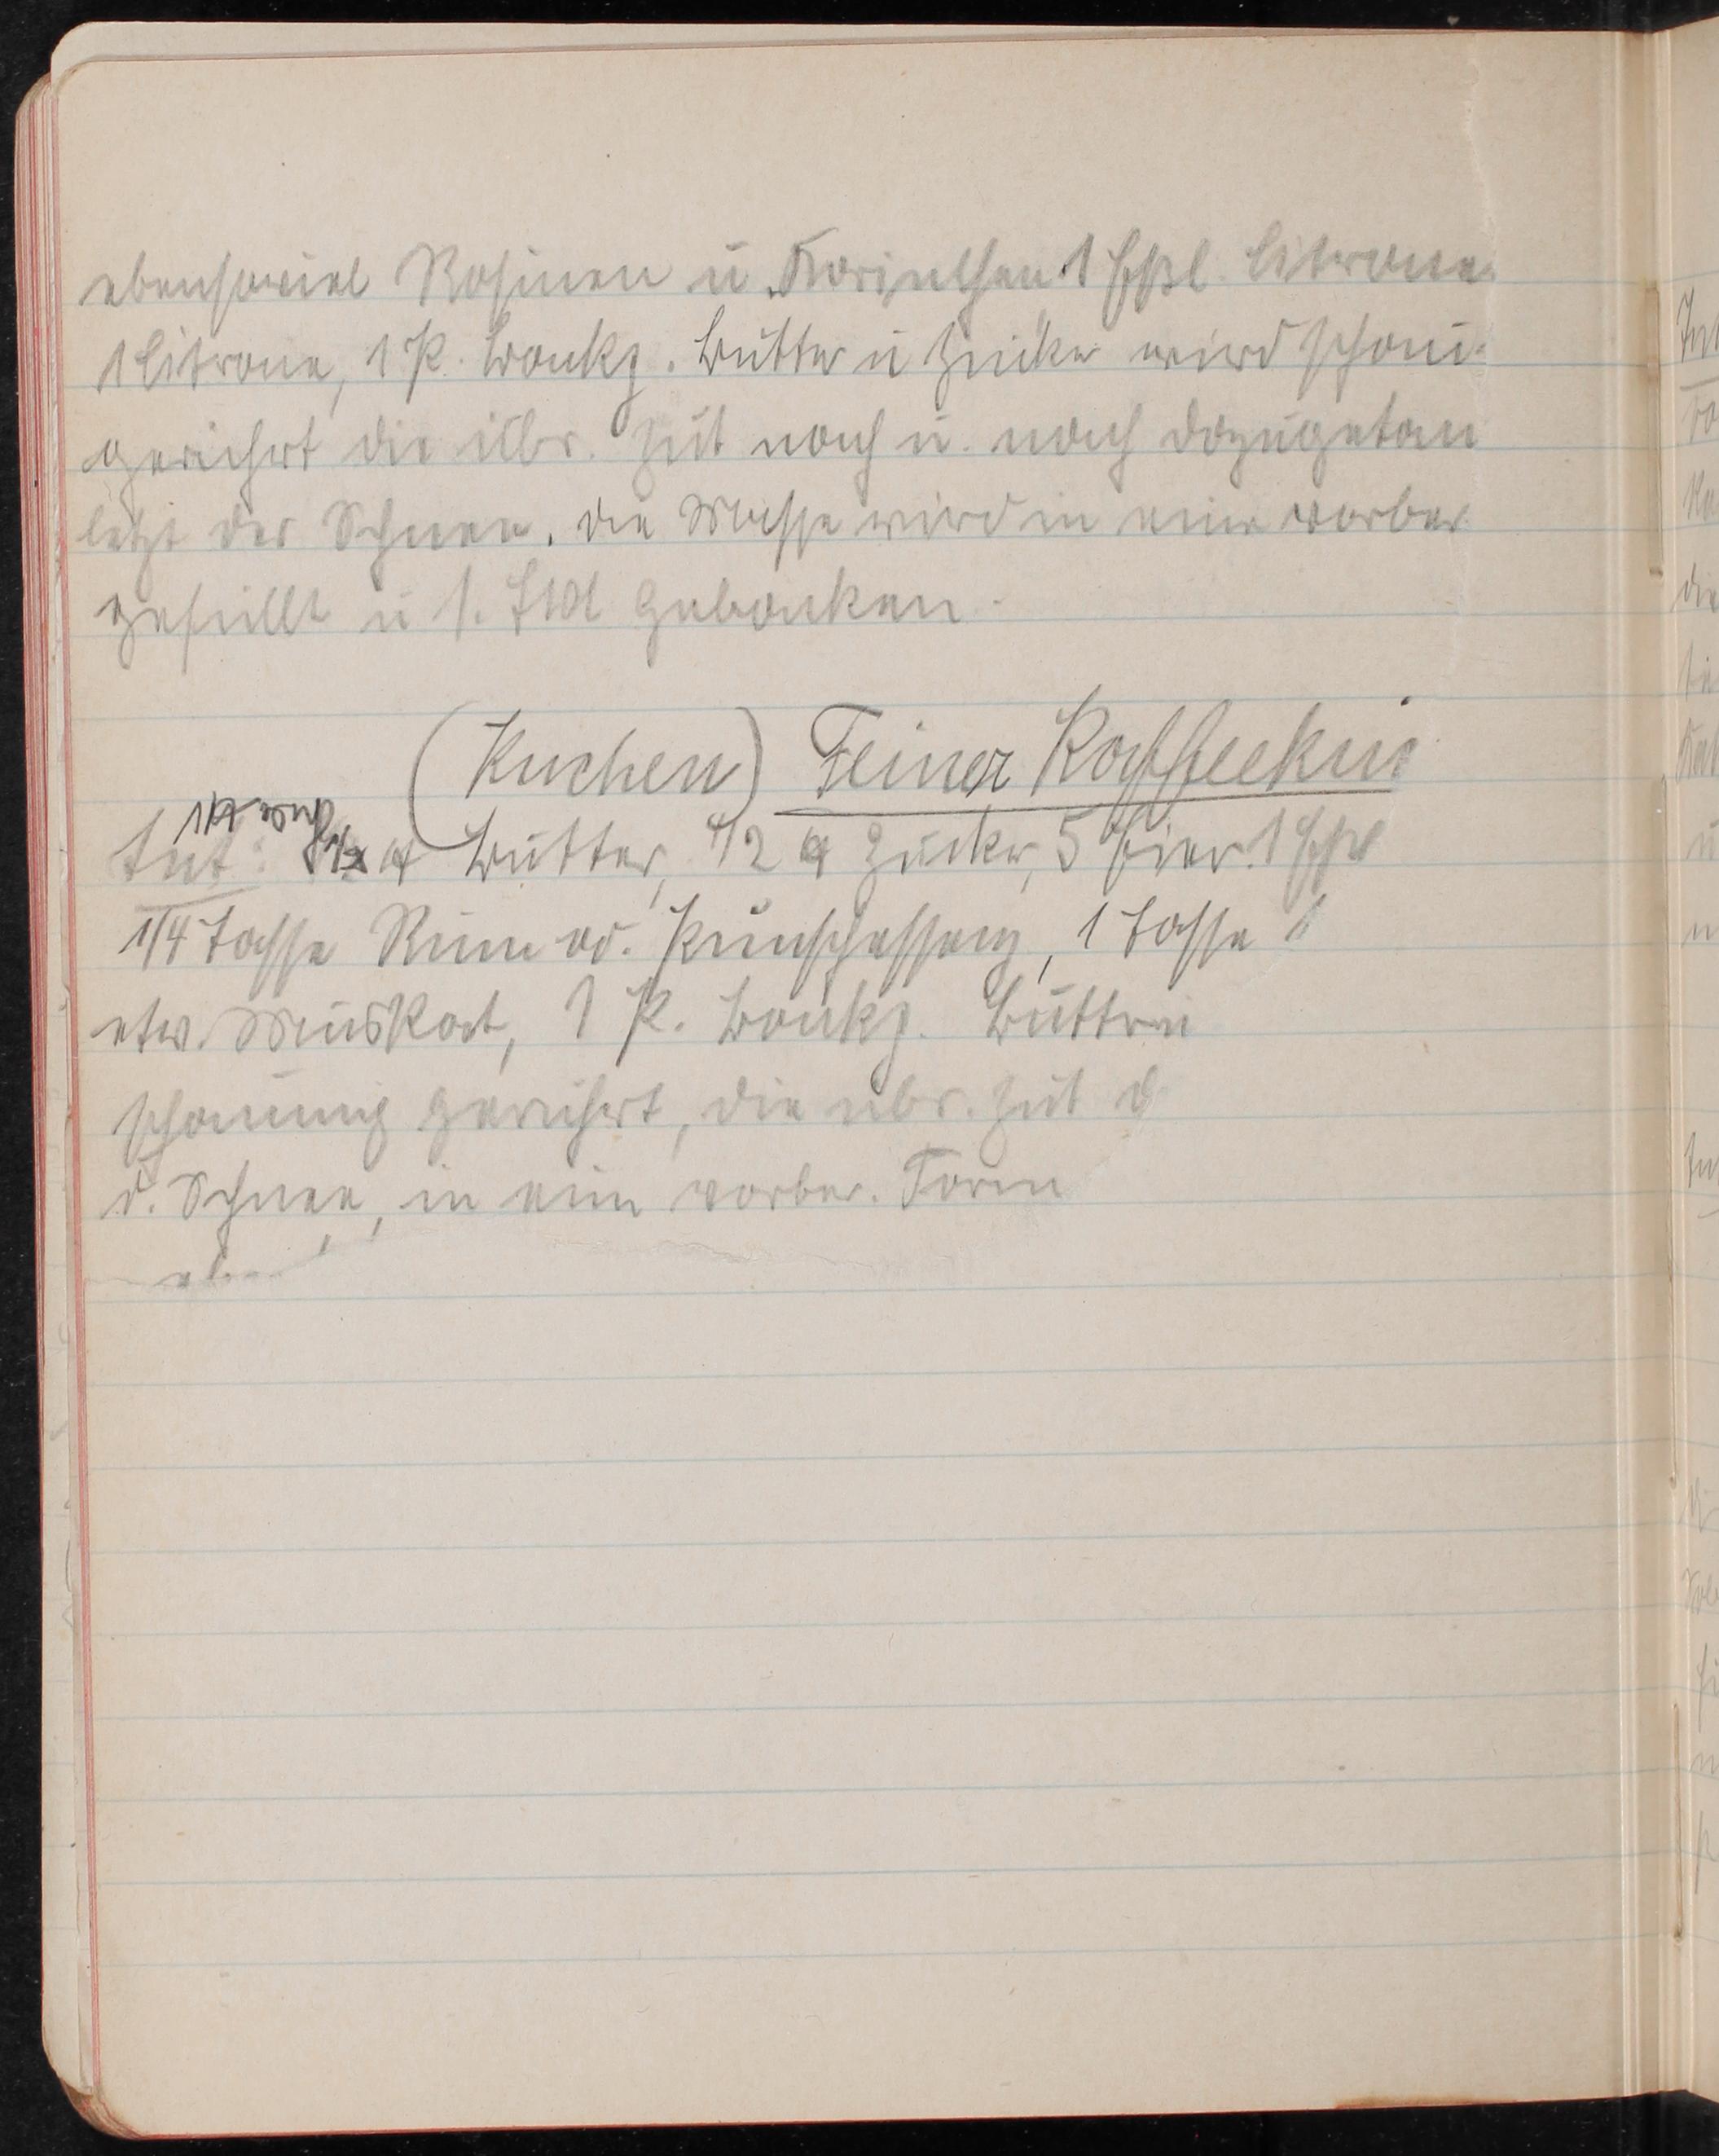 ebensoviel Rosinen u. Korinthen 1 Eßl. Citrone
1 Citrone, 1 P. Backp. Butter u Zucker wird schau-
gerührt die übr. Zut nach u. nach dazugetan
letzt der Schnee. die Masse wird in eine vorber
gefüllt u 1. Std gebacken.
(Kuchen) Feiner Kaffeeku
1 ℔
Zut: 1/2 ℔ Butter, 1/2 ℔ Zucker, 5 Eier. 1 Eßl
1/4 Tasse Rum od. Punschessenz, 1 Tasse
etw. Muskat, 1 P. Backp. Butter u
schaumig gerührt, die übr. Zut d
d. Schnee, in eine vorber. Form